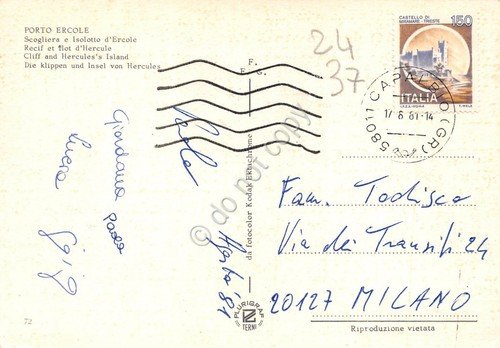 PORTO ERCOLE
Scogliera e Isolotto d'Ercole
Recif et îlot d'Hercule
Cliff and Hercules's Island
Die klippen und Insel von Hercules
F.
E. G.
24
37
CASTELLO DI
MIRAMARE - TRIESTE
150
ITALIA
58011 CAPALBIO (GR)
17 8 81-14
Giordano
Paola
Luca
Agosto '81
Fam. Todisco
Via dei Transiti 24
20127 MILANO
da fotocolor Kodak Ektachrome
do not copy
PLURIGRAF
TERNI
72
Riproduzione vietata